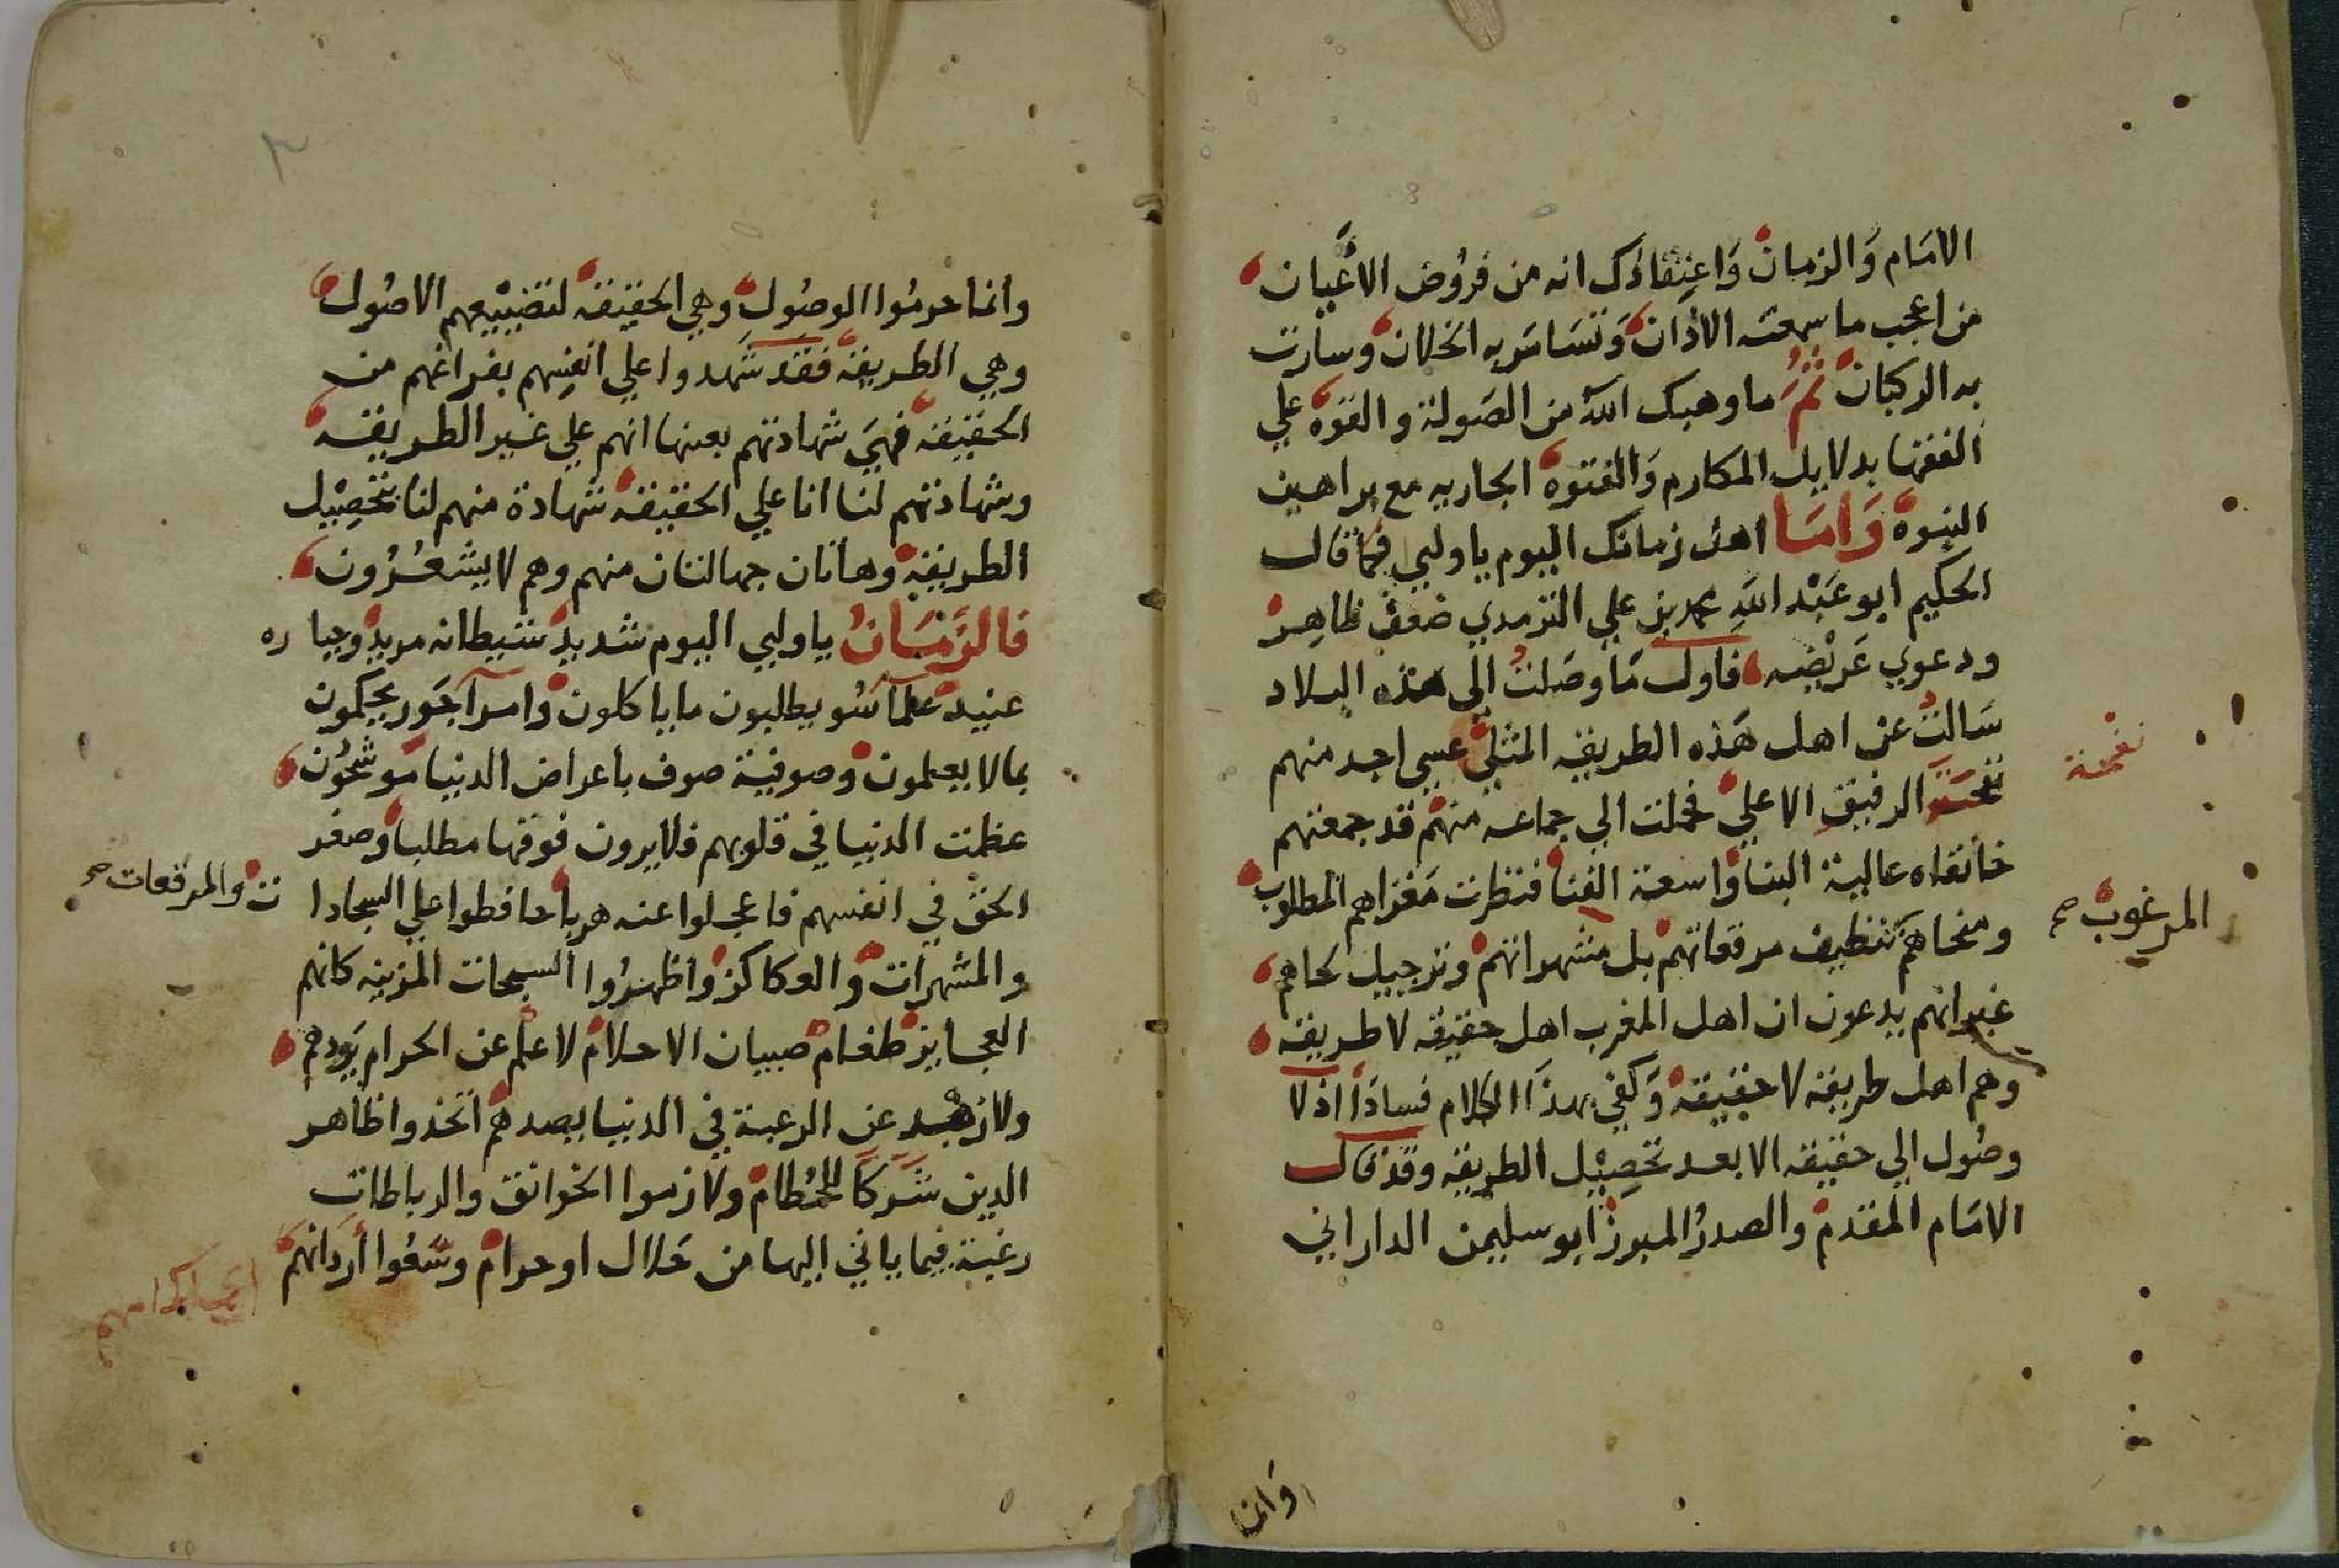 الامَام وَالزمان وَاعتِقادك انه من فروُض الاعَيان
من اعجب ما سمعته الاذان وَتسَامَر به الخلان وسارت
به الركبان ثمُ ما وهبك الله من الصَولة والقوة علي
الفقها بدلايل المكارم وَالفتوة الجاريه مع براهين
النبوة وَامَا اهل زمانك اليوم ياوليي فكما قال
الحكيم ابو عَبْد الله محمد بن علي الترمدي ضعف ظاهِر
ودعوي عَريْضه فاول مَا وصَلت إلى هذه البلاد
سَالت عن اهل هَذه الطريقه المثلي عسي اجد منهم
نفحَة الرفيق الاعلي فحملت الي جماعه منهم قد جمعتهم
نفحة
خانقاه عالية البنا واسعة الفنا فنظرت مَغزاهم المطلوب
ومنحاهم تنظيف مرقعاتهم بل مشهراتهم وترجيل لحاهم
المرغوب صح
غير انهم يدعون ان اهل المغرب اهل حقيقه لا طريقه
وهم اهل طريقه لا حقيقة وَكفي بهذَا الكلام فسادَاً اذ لا
وصُول الي حقيقه الا بعد تحصِيْل الطريقه وقد قال
الامَام المقدم والصدرُ المبرز ابو سليمن الداراني
وَانما
٣
وانما حرمُوا الوصُول وهي الحقيقه لتضييْعهم الاصُول
وهي الطريقة فقَد شهدوا علي انفسِهم بفراغهم من
الحقيقة فهيَ شهادتهم بعينها انهم علي غير الطريقه
وشهادتهم لنا انا علي الحقيقة شهادة منهم لنا بتحصِيْل
الطريقة وهاتان جهالتان منهم وهم لا يشعُرُون
فالزَّمَانُ ياوليي اليوم شديد شيطانه مريد وجباره
عنيد علمآ سُو يطلبون ما ياكلون وامرآ جَور يحكمون
بما لا يعلمون وصوفية صوف باعراض الدنيا مَوشحُون
عظمت الدنيا في قلوبهم فلا يرون فوقها مطلبا وصغر
الحق في انفسهم فاعجلوا عنه هربا حافطوا علي السجادات والمرقعات صح
والمشهرات والعكاكز واظهرُوا السبحات المزينه كانهم
العجايز طغام صبيان الاحلام لا علم عن الحرام يَردهم
ولا زهد عن الرغبة في الدنيا يصدهم اتخذوا ظاهر
الدين شركاً للحُطام ولازموا الخوانق والرباطاتِ
رغبة فيما ياتي اليها من حَلال او حرام وسَعُوا أردَانهم